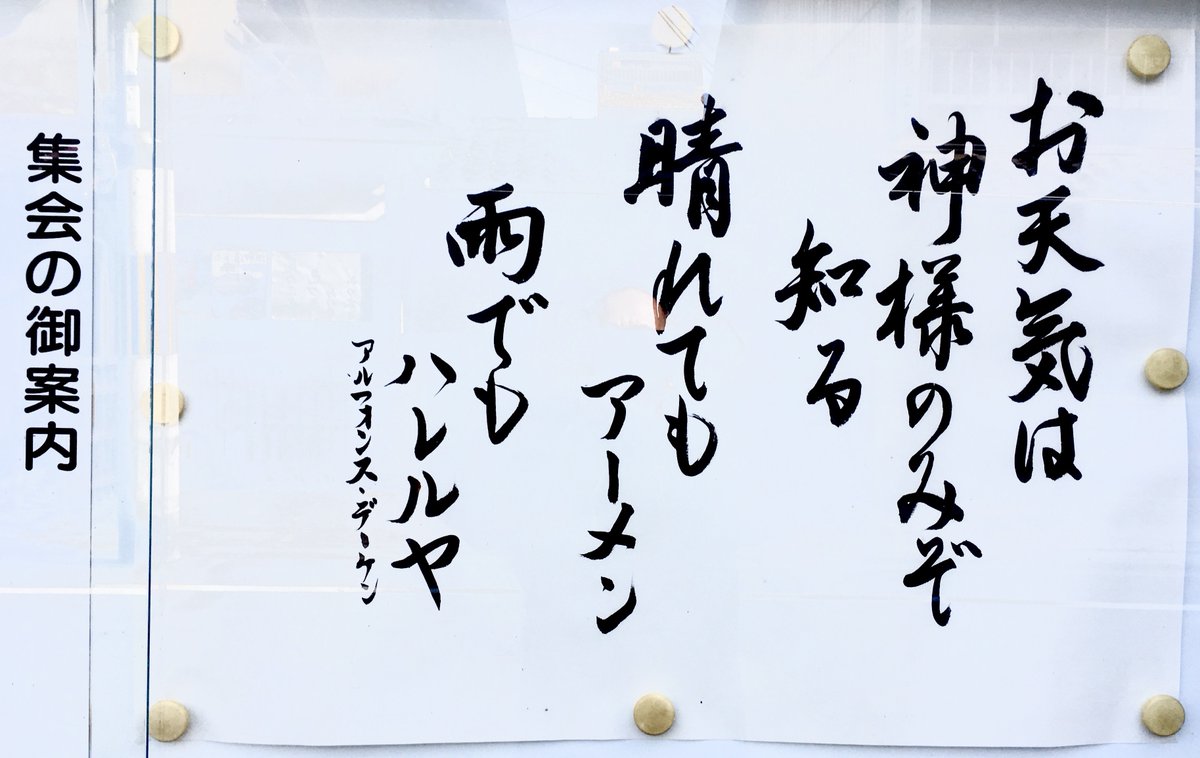 お天気は
神様のみぞ
知る
晴れても
アーメン
雨でも
ハレルヤ
アルフォンス・デーケン
集会の御案内